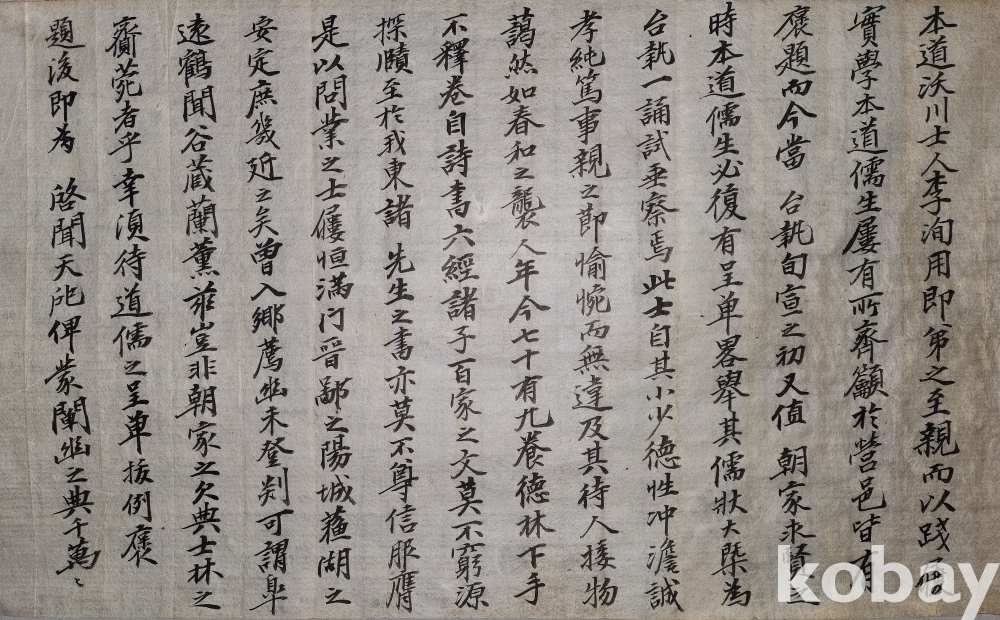 本道沃川士人李洵用即弟之至親而以踐履
實學本道儒生屢有所齊籲於營邑皆有
褒題而今當 台執旬宣之初又值 朝家求賢之
時本道儒生必復有呈单畧擧其儒狀大槩為
台執一誦試垂察焉此士自其小少德性冲澹誠
孝純篤事親之節愉惋而無違及其待人接物
藹然如春和之襲人年今七十有九養德林下手
不釋卷自詩書六經諸子百家之文莫不窮源
探賾至於我東諸 先生之書亦莫不尊信服膺
是以問業之士屨恒滿门晉鄙之陽城蘓湖之
安定庶幾近之矣曾入鄉薦幽未登剡可謂臯
遠鶴聞谷蔵蘭薰玆豈非朝家之欠典士林之
齎菀者乎幸湏待道儒之呈单援例褒
題後即為 啓聞天陁俾蒙闡幽之典千萬〻
kobay